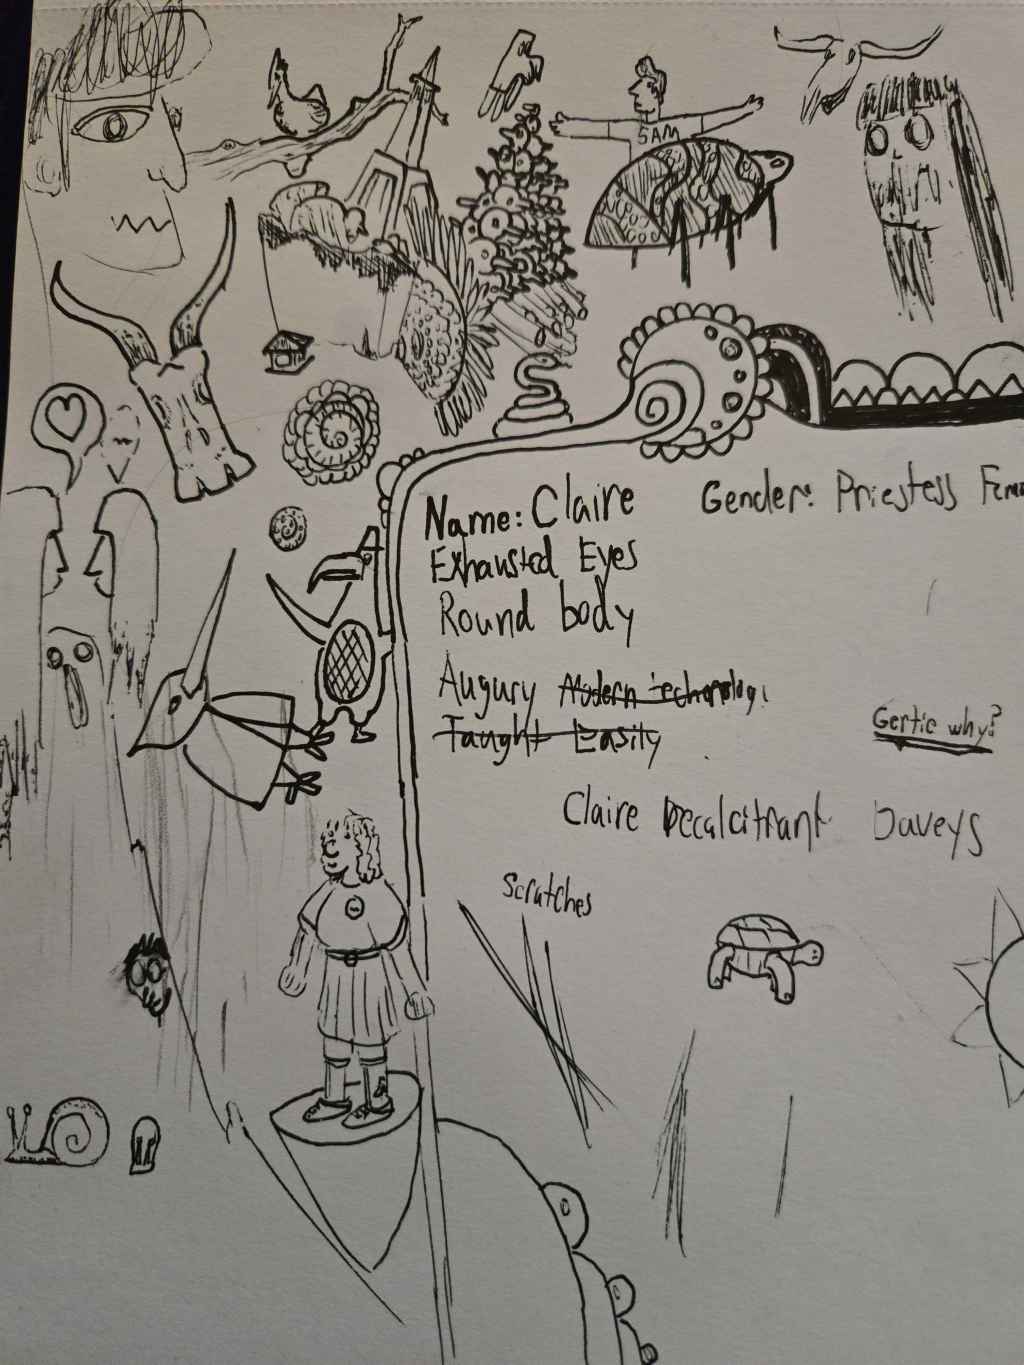 SAM
Name: Claire
Gender: Priestess
Exhausted Eyes
Round body
Augury Modern
Taught Easily
Gertie why?
Claire Decalcitrant Daveys
Scratches